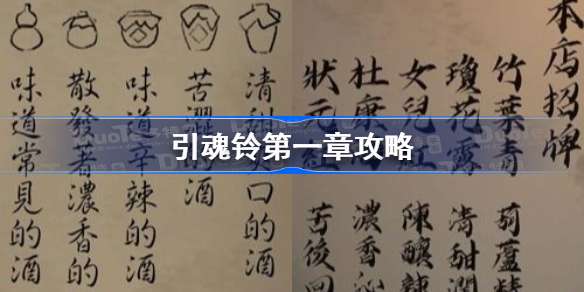 引魂铃第一章攻略
清甜口的酒
苦澀的酒
味道辛辣的酒
散發著濃香的
味道常見的酒
本店招牌
竹葉青 葫蘆
瓊花露 清甜潤
女兒紅 陳釀辣
杜康 濃香沁
狀元紅 苦後回